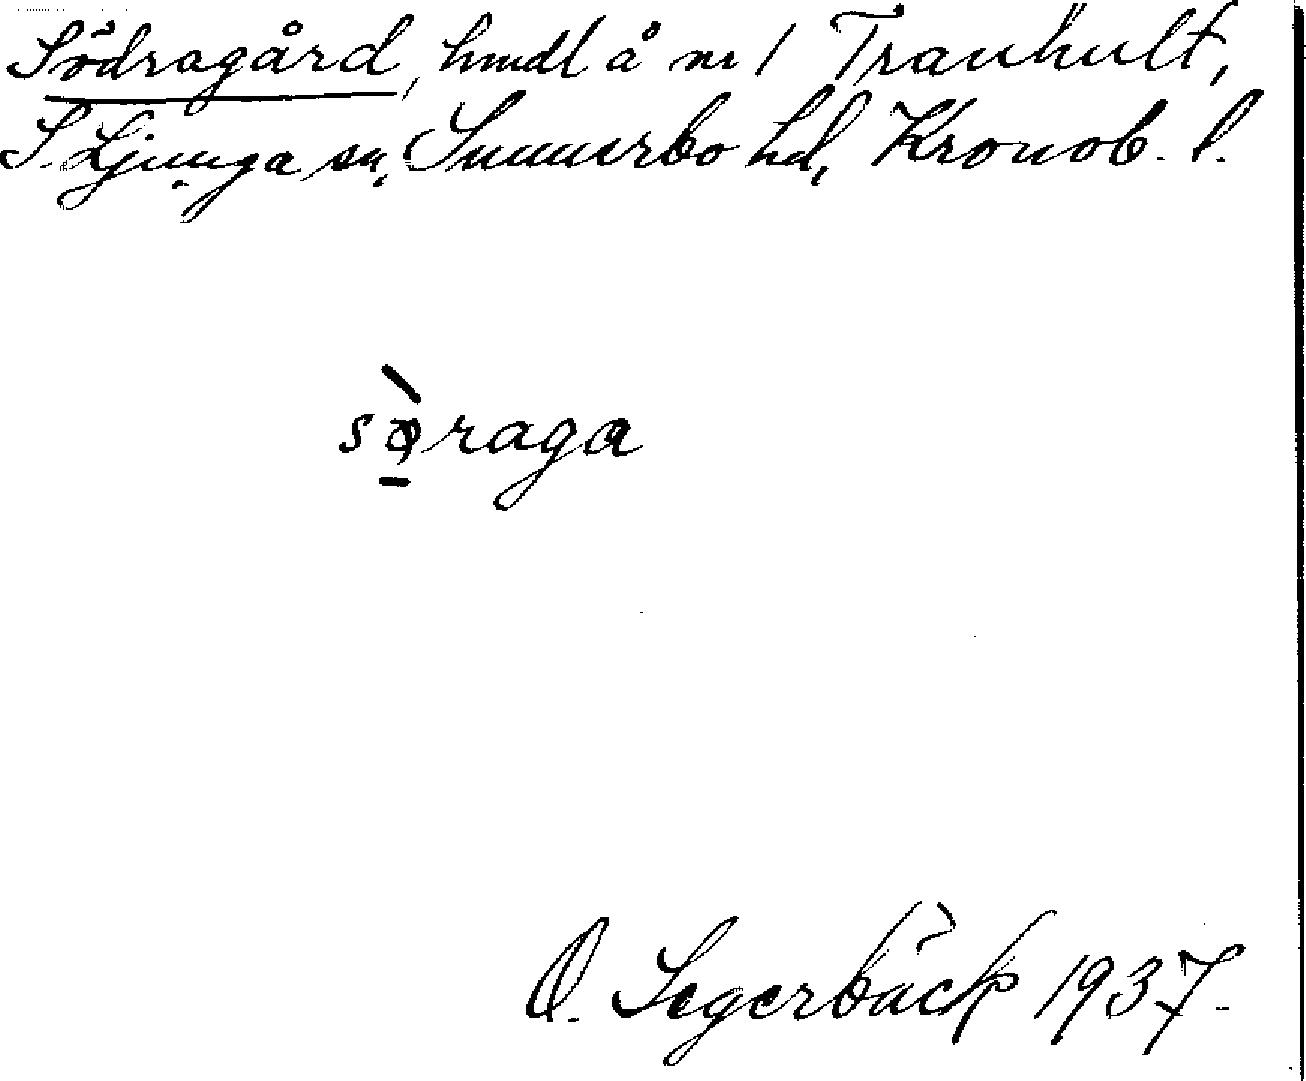 Södragård, hmdl å nr 1 Tranhult,
S. Ljunga sn, Sunnerbo hd, Kronob. l.
sø̀raga
O. Segerbäck 1937.